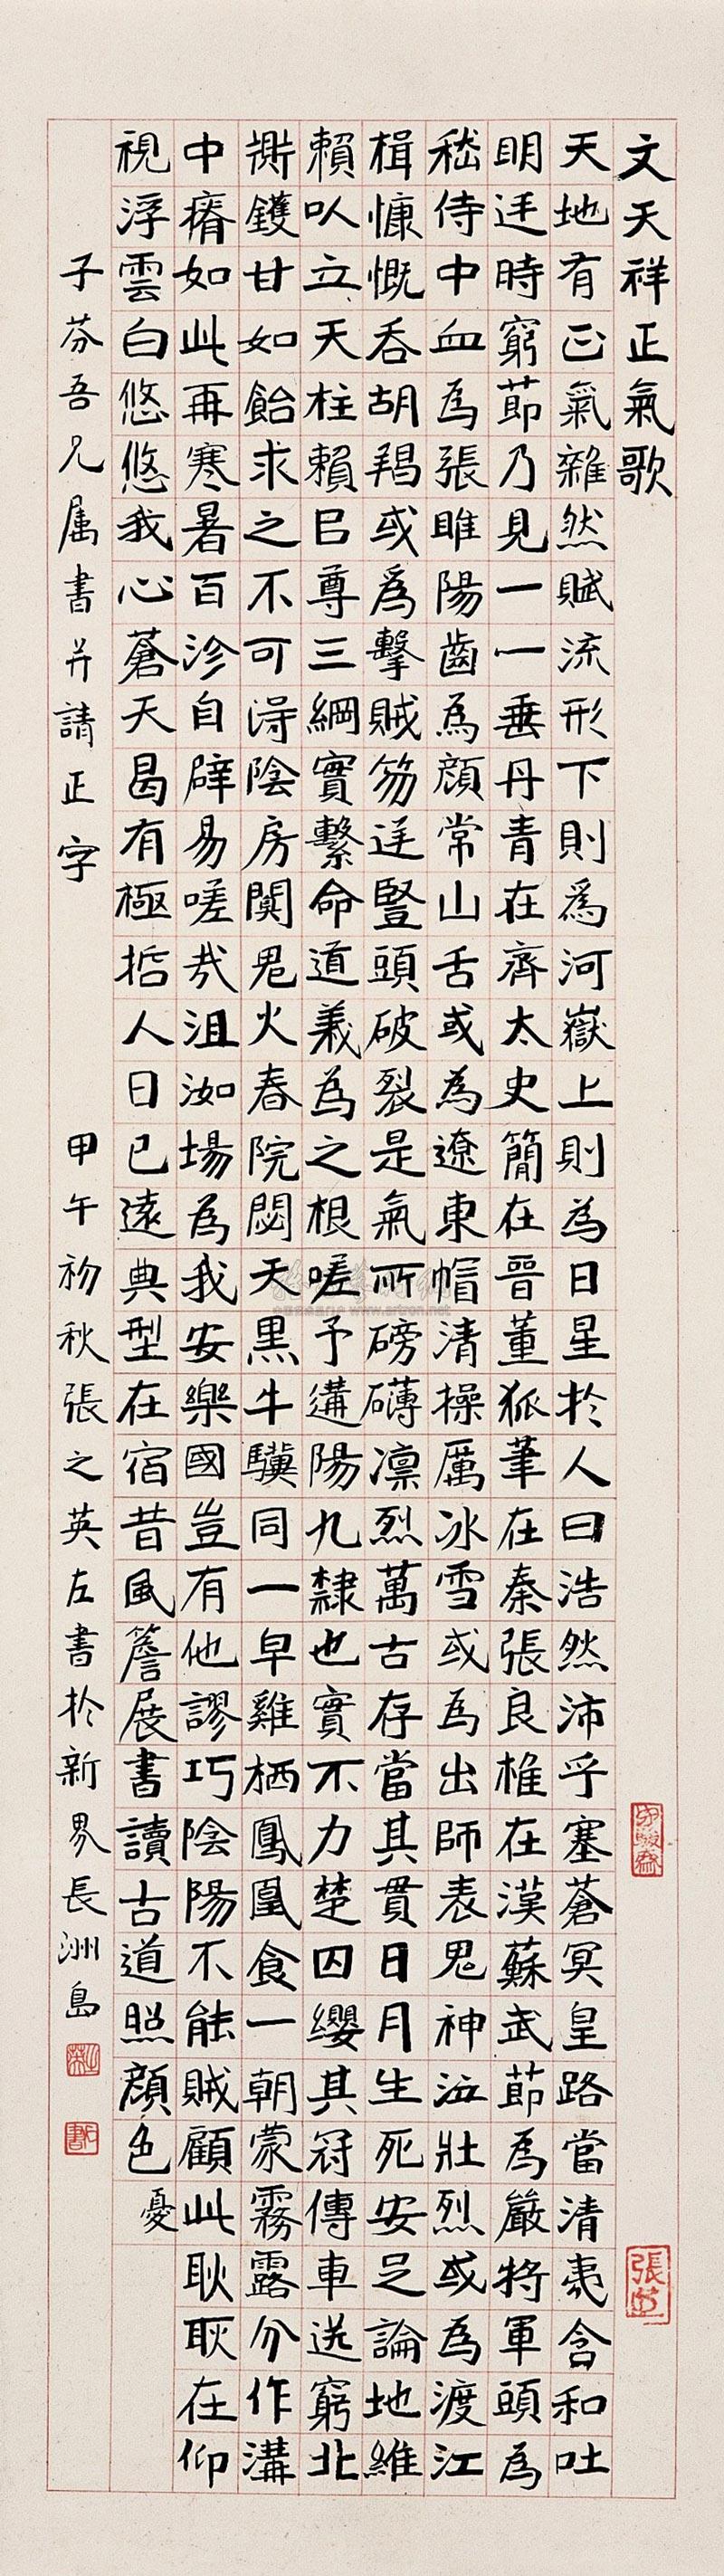 文天祥正氣歌
天地有正氣雜然賦流形下則爲河嶽上則為日星於人曰浩然沛乎塞蒼冥皇路當清夷含和吐
明廷時窮節乃見一一垂丹青在齊太史簡在晉董狐筆在秦張良椎在漢蘇武節為嚴將軍頭為
嵇侍中血為張睢陽齒為顏常山舌或為遼東帽清操厲冰雪或為出師表鬼神泣壯烈或為渡江
楫慷慨吞胡羯或爲擊賊笏逆豎頭破裂是氣所磅礴凛烈萬古存當其貫日月生死安足論地維
賴以立天柱賴㠯尊三綱實繫命道義為之根嗟予遘陽九隸也實不力楚囚纓其冠傳車送窮北
鑊甘如飴求之不可得陰房闃鬼火春院閟天黑牛驥同一皁雞栖鳳凰食一朝蒙霧露分作溝
中瘠如此再寒暑百沴自辟易嗟哉沮洳場為我安樂國豈有他謬巧陰陽不能賊顧此耿耿在仰
視浮雲白悠悠我心蒼天曷有極哲人日已遠典型在宿昔風簷展書讀古道照顏色 憂
子芬吾兄属書并請正字 甲午初秋張之英左書於新界長洲島